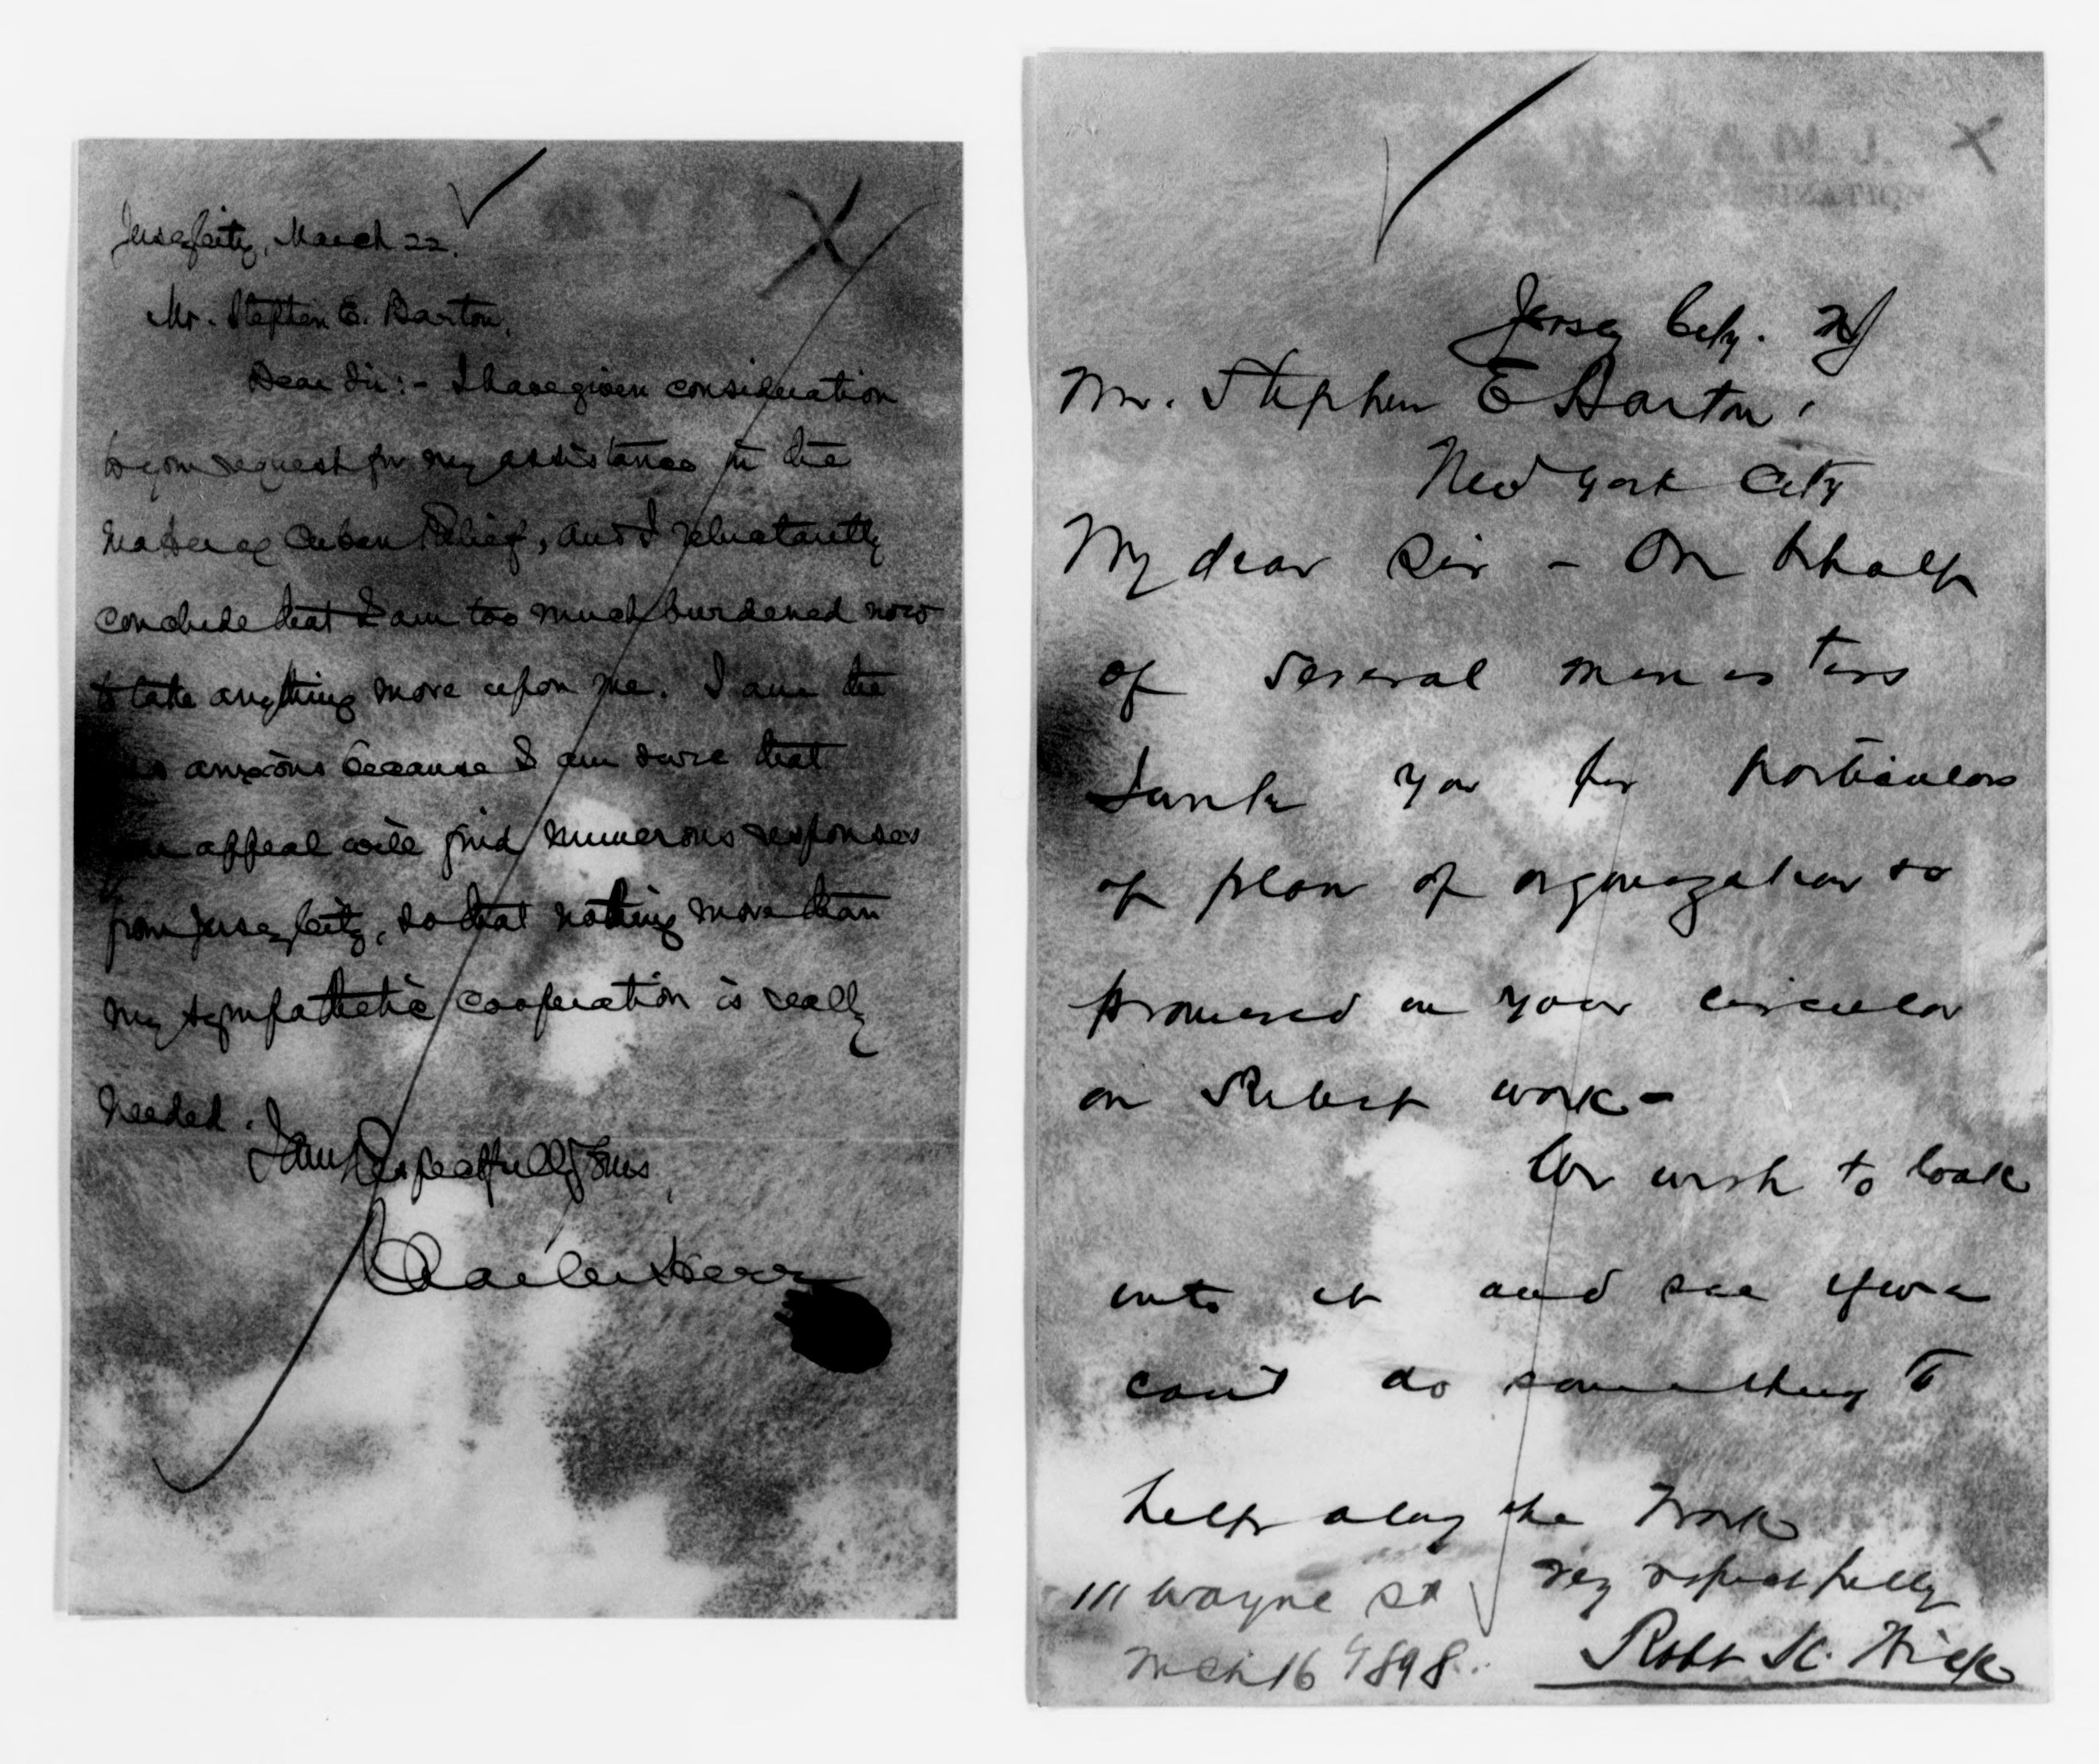 Jersey City, March 22.
Mr. Stephen E. Barton,
Dear Sir:- I have given consideration
to your request for my assistance in the
matter of Cuban Relief, and I reluctantly
conclude that I am too much burdened now
to take anything more upon me. I am the
anxious because I am sure that
appeal will find numerous responses
from Jersey City, so that nothing more than
my sympathetic cooperation is really
needed.
I am Respectfully Yours,
Charles Herr
Jersey City. NJ
Mr. Stephen E Barton,
New York City
My dear Sir - On behalf
of several ministers
I write you for particulars
of plan of organization so
promised in your circular
on Relief work-
We wish to look
into it and see if we
can't do something to
help along the work
Very respectfully
111 Wayne St
Mch 16 1898.
Robt K. Wick